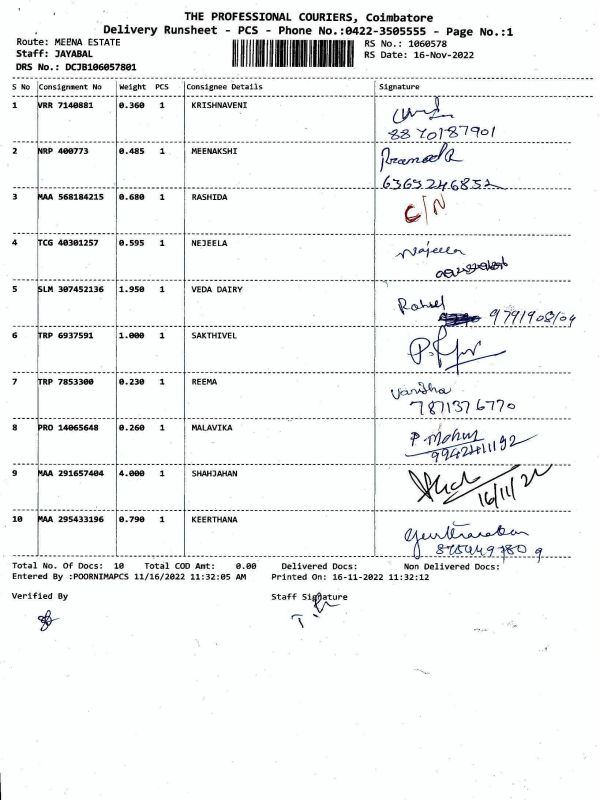 THE PROFESSIONAL COURIERS, Coimbatore
Delivery Runsheet - PCS - Phone No.:0422-3505555 - Page No.:1
Route: MEENA ESTATE
RS No.: 1060578
Staff: JAYABAL
RS Date: 16-Nov-2022
DRS No.: DCJB106057801
S No Consignment No Weight PCS Consignee Details Signature
1 VRR 7140881 0.360 1 KRISHNAVENI
8870187901
2 NRP 400773 0.485 1 MEENAKSHI
6365246852
3 MAA 568184215 0.680 1 RASHIDA C/N
4 TCG 40301257 0.595 1 NEJEELA Najeela
5 SLM 307452136 1.950 1 VEDA DAIRY
9791908104
6 TRP 6937591 1.000 1 SAKTHIVEL
7 TRP 7853300 0.230 1 REEMA Varsha
7871376770
8 PRO 14065648 0.260 1 MALAVIKA P Mohan
9942411192
9 MAA 291657404 4.000 1 SHAHJAHAN
16/11/22
10 MAA 295433196 0.790 1 KEERTHANA
Total No. Of Docs: 10 Total COD Amt: 0.00 Delivered Docs: Non Delivered Docs:
Entered By :POORNIMAPCS 11/16/2022 11:32:05 AM Printed On: 16-11-2022 11:32:12
Verified By Staff Signature